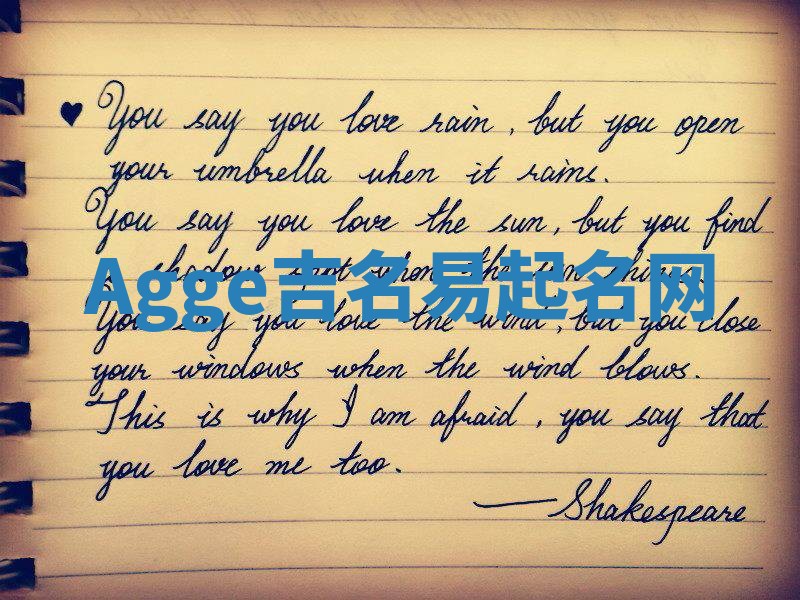 ♥ You say you love rain, but you open
your umbrella when it rains.
You say you love the sun, but you find
shadow spot when the sun shines.
Agge吉名易起名网
You say you love the wind, but you close
your windows when the wind blows.
This is why I am afraid, you say that
you love me too.
—Shakespeare